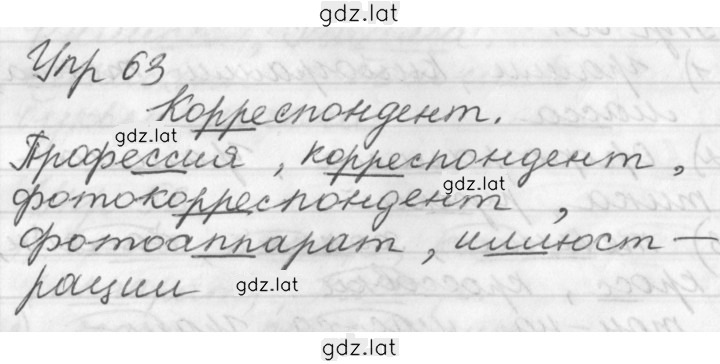 gdz.lat
Упр 63
Корреспондент.
gdz.lat
Профессия, корреспондент,
gdz.lat
фотокорреспондент,
фотоаппарат, иллюст-
рации
gdz.lat
gdz.lat